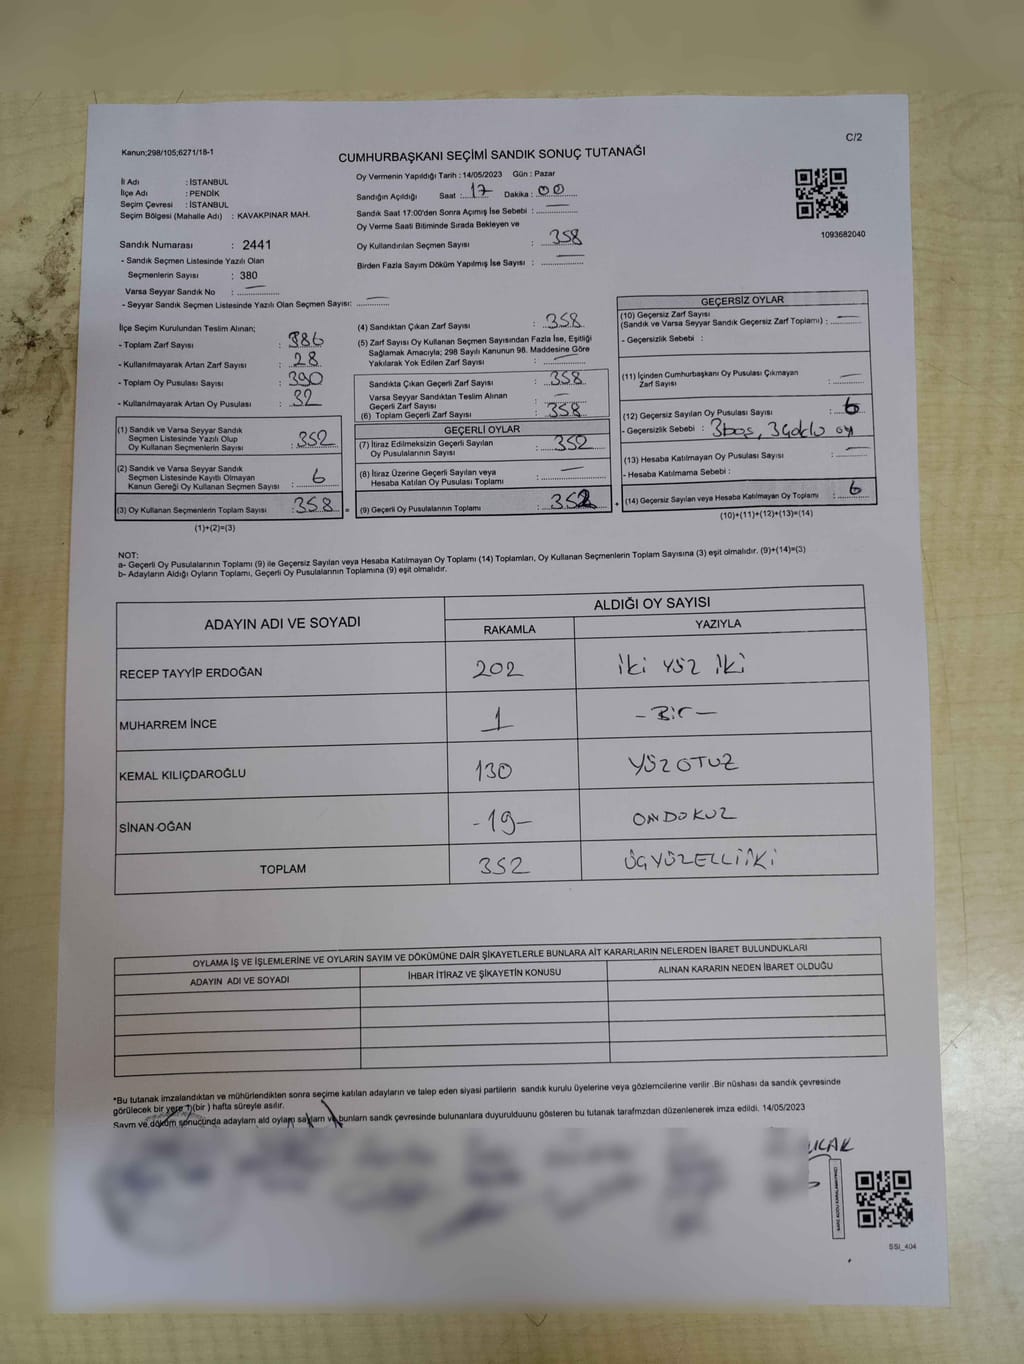 C/2
Kanun;298/105;6271/18-1
CUMHURBAŞKANI SEÇİMİ SANDIK SONUÇ TUTANAĞI
İl Adı : İSTANBUL
İlçe Adı : PENDİK
Seçim Çevresi : İSTANBUL
Seçim Bölgesi (Mahalle Adı) : KAVAKPINAR MAH.
Oy Vermenin Yapıldığı Tarih : 14/05/2023 Gün : Pazar
Sandığın Açıldığı Saat : 17 Dakika : 00
Sandık Saat 17:00'den Sonra Açılmış İse Sebebi : —
Oy Verme Saati Bitiminde Sırada Bekleyen ve
Oy Kullandırılan Seçmen Sayısı : 358
Birden Fazla Sayım Döküm Yapılmış İse Sayısı : —
1093682040
Sandık Numarası : 2441
- Sandık Seçmen Listesinde Yazılı Olan
Seçmenlerin Sayısı : 380
Varsa Seyyar Sandık No : —
- Seyyar Sandık Seçmen Listesinde Yazılı Olan Seçmen Sayısı: —
İlçe Seçim Kurulundan Teslim Alınan;
- Toplam Zarf Sayısı : 386
- Kullanılmayarak Artan Zarf Sayısı : 28
- Toplam Oy Pusulası Sayısı : 390
- Kullanılmayarak Artan Oy Pusulası : 32
(1) Sandık ve Varsa Seyyar Sandık
Seçmen Listesinde Yazılı Olup
Oy Kullanan Seçmenlerin Sayısı : 352
(2) Sandık ve Varsa Seyyar Sandık
Seçmen Listesinde Kayıtlı Olmayan
Kanun Gereği Oy Kullanan Seçmen Sayısı : 6
(3) Oy Kullanan Seçmenlerin Toplam Sayısı : 358 =
(1)+(2)=(3)
(4) Sandıktan Çıkan Zarf Sayısı : 358
(5) Zarf Sayısı Oy Kullanan Seçmen Sayısından Fazla İse, Eşitliği
Sağlamak Amacıyla; 298 Sayılı Kanunun 98. Maddesine Göre
Yakılarak Yok Edilen Zarf Sayısı : —
Sandıkta Çıkan Geçerli Zarf Sayısı : 358
Varsa Seyyar Sandıktan Teslim Alınan
Geçerli Zarf Sayısı : —
(6) Toplam Geçerli Zarf Sayısı : 358
GEÇERLİ OYLAR
(7) İtiraz Edilmeksizin Geçerli Sayılan
Oy Pusulalarının Sayısı : 352
(8) İtiraz Üzerine Geçerli Sayılan veya
Hesaba Katılan Oy Pusulası Toplamı : —
(9) Geçerli Oy Pusulalarının Toplamı : 352 +
GEÇERSİZ OYLAR
(10) Geçersiz Zarf Sayısı
(Sandık ve Varsa Seyyar Sandık Geçersiz Zarf Toplamı) : —
- Geçersizlik Sebebi :
(11) İçinden Cumhurbaşkanı Oy Pusulası Çıkmayan
Zarf Sayısı : —
(12) Geçersiz Sayılan Oy Pusulası Sayısı : 6
- Geçersizlik Sebebi : 3 boş, 3 çoklu oy
(13) Hesaba Katılmayan Oy Pusulası Sayısı : —
- Hesaba Katılmama Sebebi :
(14) Geçersiz Sayılan veya Hesaba Katılmayan Oy Toplamı : 6
(10)+(11)+(12)+(13)=(14)
NOT:
a- Geçerli Oy Pusulalarının Toplamı (9) ile Geçersiz Sayılan veya Hesaba Katılmayan Oy Toplamı (14) Toplamları, Oy Kullanan Seçmenlerin Toplam Sayısına (3) eşit olmalıdır. (9)+(14)=(3)
b- Adayların Aldığı Oyların Toplamı, Geçerli Oy Pusulalarının Toplamına (9) eşit olmalıdır.
ADAYIN ADI VE SOYADI
ALDIĞI OY SAYISI
RAKAMLA YAZIYLA
RECEP TAYYİP ERDOĞAN 202 İki YÜZ İKİ
MUHARREM İNCE 1 - Bir -
KEMAL KILIÇDAROĞLU 130 YÜZ OTUZ
SİNAN OĞAN - 19 - ONDOKUZ
TOPLAM 352 ÜÇYÜZELLİİKİ
OYLAMA İŞ VE İŞLEMLERİNE VE OYLARIN SAYIM VE DÖKÜMÜNE DAİR ŞİKAYETLERLE BUNLARA AİT KARARLARIN NELERDEN İBARET BULUNDUKLARI
ADAYIN ADI VE SOYADI İHBAR İTİRAZ VE ŞİKAYETİN KONUSU ALINAN KARARIN NEDEN İBARET OLDUĞU
*Bu tutanak imzalandıktan ve mühürlendikten sonra seçime katılan adayların ve talep eden siyasi partilerin sandık kurulu üyelerine veya gözlemcilerine verilir .Bir nüshası da sandık çevresinde
görülecek bir yere 1(bir ) hafta süreyle asılır.
Saym ve döküm sonucunda adaylarn ald oylarn saylarn ve bunlarn sandk çevresinde bulunanlara duyurulduunu gösteren bu tutanak tarafmzdan düzenlenerek imza edildi. 14/05/2023
SSI_404